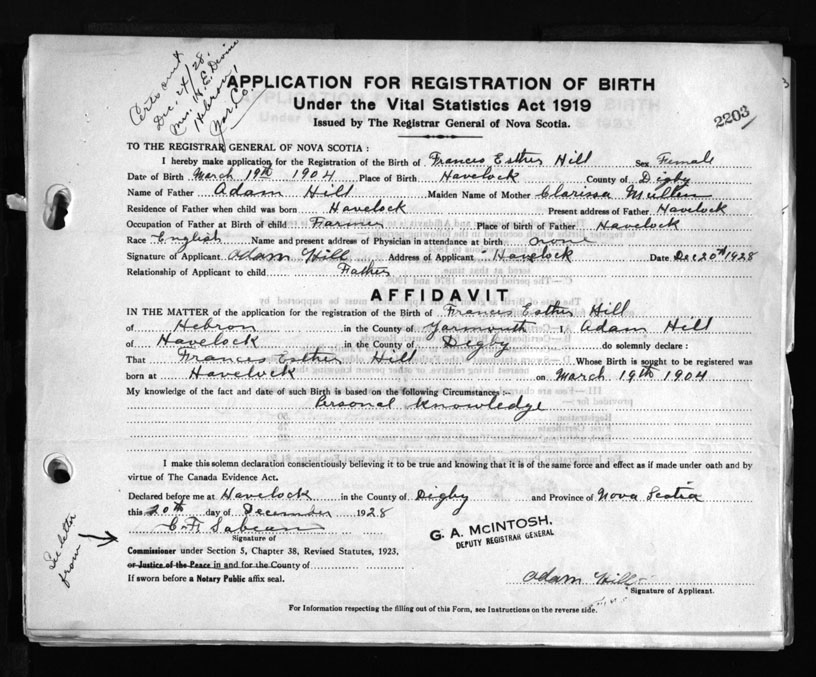 Certs out
Dec. 24/28.
Mrs. H. E.
Hebron,
Yar. Co.
APPLICATION FOR REGISTRATION OF BIRTH
Under the Vital Statistics Act 1919
Issued by The Registrar General of Nova Scotia.
2203
TO THE REGISTRAR GENERAL OF NOVA SCOTIA :
I hereby make application for the Registration of the Birth of Frances Esther Hill Sex Female
Date of Birth March 19th 1904 Place of Birth Havelock County of Digby
Name of Father Adam Hill Maiden Name of Mother Clarissa Mullen
Residence of Father when child was born Havelock Present address of Father Havelock
Occupation of Father at Birth of child Farmer Place of birth of Father Havelock
Race English Name and present address of Physician in attendance at birth none
Signature of Applicant Adam Hill Address of Applicant Havelock Date Dec 20th 1928
Relationship of Applicant to child Father
AFFIDAVIT
IN THE MATTER of the application for the registration of the Birth of Frances Esther Hill
of Hebron in the County of Yarmouth I, Adam Hill
of Havelock in the County of Digby do solemnly declare :
That Frances Esther Hill Whose Birth is sought to be registered was
born at Havelock on March 19th 1904
My knowledge of the fact and date of such Birth is based on the following Circumstances :-
Personal knowledge
I make this solemn declaration conscientiously believing it to be true and knowing that it is of the same force and effect as if made under oath and by
virtue of The Canada Evidence Act.
Declared before me at Havelock in the County of Digby and Province of Nova Scotia
this 20th day of December 1928
C. F. Sabean
Signature of
G. A. McINTOSH,
DEPUTY REGISTRAR GENERAL
See letter
from
Commissioner under Section 5, Chapter 38, Revised Statutes, 1923,
or Justice of the Peace in and for the County of
If sworn before a Notary Public affix seal.
Adam Hill
Signature of Applicant.
For Information respecting the filling out of this Form, see Instructions on the reverse side.